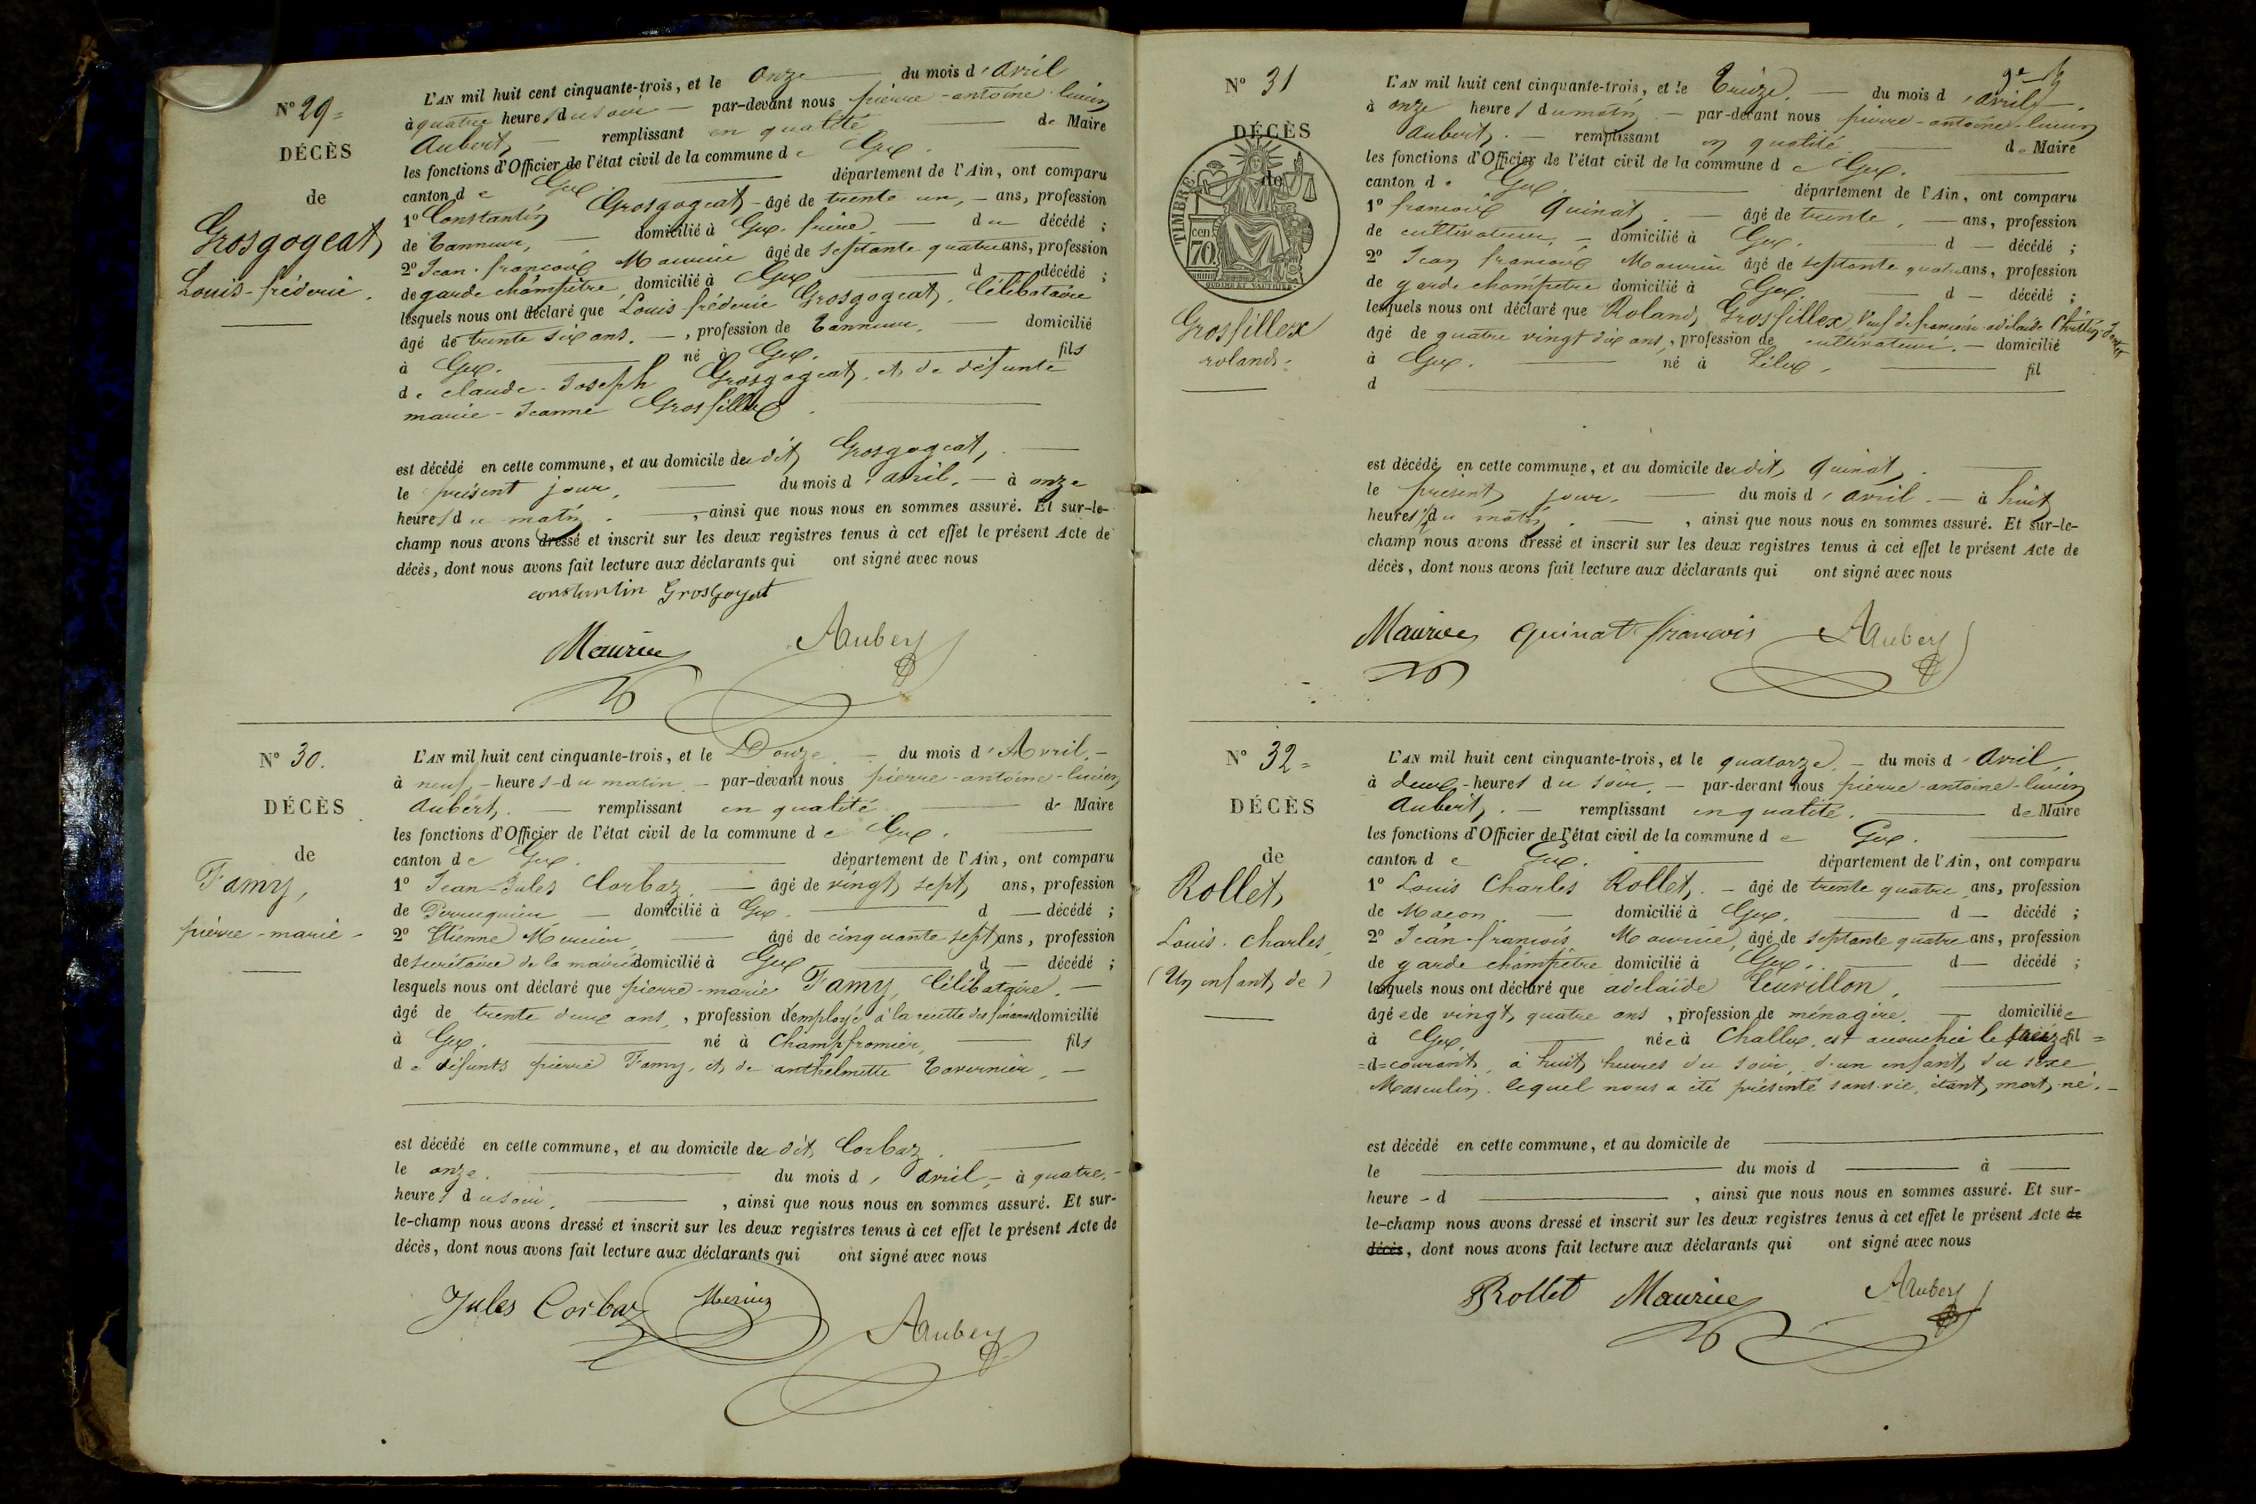 N° 29=
DÉCÈS
de
Grosgogeat,
Louis-fréderic.
L'AN mil huit cent cinquante-trois, et le onze du mois d'avril
à quatre heures du soir par-devant nous pierre-antoine-lucien
Aubert, remplissant en qualité de Maire
les fonctions d'Officier de l'état civil de la commune de Gex.
canton de Gex département de l'Ain, ont comparu
1° Constantin Grosgogeat, âgé de trente un, ans, profession
de Tanneur, domicilié à Gex. frère du décédé ;
2° Jean-françois Maurice âgé de septante quatre ans, profession
de garde champêtre domicilié à Gex d décédé ;
lesquels nous ont déclaré que Louis fréderic Grosgogeat, Célibataire
âgé de trente six ans. , profession de Tanneur, domicilié
à Gex. né à Gex. fils
de claude-Joseph Grosgogeat, et de défunte
marie-Jeanne Grosfillex
est décédé en cette commune, et au domicile du dit, Grosgogeat,
le présent jour, du mois d'avril. à onze
heures du matin. , ainsi que nous nous en sommes assuré. Et sur-le-
champ nous avons dressé et inscrit sur les deux registres tenus à cet effet le présent Acte de
décès, dont nous avons fait lecture aux déclarants qui ont signé avec nous
constantin Grosgogeat
Maurice Aubert
N° 30.
DÉCÈS
de
Famy,
pierre-marie-
L'AN mil huit cent cinquante-trois, et le Douze du mois d'Avril.
à neuf heures du matin. par-devant nous pierre-antoine-lucien
Aubert, remplissant en qualité de Maire
les fonctions d'Officier de l'état civil de la commune de Gex.
canton de Gex. département de l'Ain, ont comparu
1° Jean-Jules Corbaz. âgé de vingt sept ans, profession
de Perruquier domicilié à Gex. d décédé ;
2° Etienne Mercier, âgé de cinquante-sept ans, profession
de secrétaire de la mairie domicilié à Gex d décédé ;
lesquels nous ont déclaré que pierre-marie Famy, Célibataire.
âgé de trente deux ans, , profession d'employé à la recette des finances domicilié
à Gex. né à Champfromier, fils
de défunts pierre Famy, et de anthelmette Tavernier,
est décédé en cette commune, et au domicile du dit, Corbaz.
le onze. du mois d'avril, à quatre
heures du soir. , ainsi que nous nous en sommes assuré. Et sur-
le-champ nous avons dressé et inscrit sur les deux registres tenus à cet effet le présent Acte de
décès, dont nous avons fait lecture aux déclarants qui ont signé avec nous
Jules Corbaz Mercier
Aubert
N° 31
DÉCÈS
de
TIMBRE
cen
70
Grosfillex
roland.
L'AN mil huit cent cinquante-trois, et le Treize. du mois d'avril
à onze heures du matin par-devant nous pierre-antoine-lucien
Aubert, remplissant en qualité de Maire
les fonctions d'Officier de l'état civil de la commune de Gex.
canton de Gex département de l'Ain, ont comparu
1° françois Quinat, âgé de trente, ans, profession
de cultivateur, domicilié à Gex. d décédé ;
2° Jean françois Maurice âgé de septante quatre ans, profession
de garde champêtre domicilié à Gex d décédé ;
lesquels nous ont déclaré que Roland, Grosfillex, Veuf de françoise adélaide
âgé de quatre vingt dix ans, , profession de cultivateur. domicilié
à Gex. né à Lélex, fil
d
est décédé en cette commune, et au domicile du dit, Quinat,
le présent, jour. du mois d'avril. à huit,
heures du matin. , ainsi que nous nous en sommes assuré. Et sur-le-
champ nous avons dressé et inscrit sur les deux registres tenus à cet effet le présent Acte de
décès, dont nous avons fait lecture aux déclarants qui ont signé avec nous
Maurice Quinat françois Aubert
N° 32=
DÉCÈS
de
Rollet,
Louis. Charles,
(Un enfant, de)
L'AN mil huit cent cinquante-trois, et le quatorze. du mois d'avril,
à deux heures du soir. par-devant nous pierre-antoine-lucien
Aubert, remplissant en qualité. de Maire
les fonctions d'Officier de l'état civil de la commune de Gex.
canton de Gex. département de l'Ain, ont comparu
1° Louis Charles Rollet, âgé de trente quatre ans, profession
de Maçon. domicilié à Gex. d décédé ;
2° Jean-françois, Maurice, âgé de septante quatre ans, profession
de garde champêtre domicilié à Gex. d décédé ;
lesquels nous ont déclaré que adelaïde Teurillon,
âgée de vingt, quatre ans , profession de ménagère. domiciliée
à Gex, née à Challex, est accouchée le treize fil =
=d=courant, à huit, heures du soir, d'un enfant, du sexe
Masculin. lequel nous a été présenté sans vie, étant, mort, né.
est décédé en cette commune, et au domicile de
le du mois d à
heure d , ainsi que nous nous en sommes assuré. Et sur-
le-champ nous avons dressé et inscrit sur les deux registres tenus à cet effet le présent Acte de
décès, dont nous avons fait lecture aux déclarants qui ont signé avec nous
Rollet Maurice Aubert